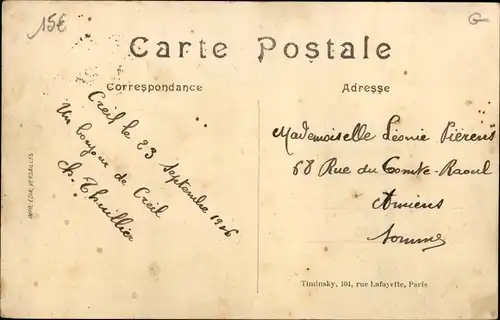 15€
G
Carte Postale
Correspondance
Adresse
Creil le 23 Septembre 1906
Un bonjour de Creil
Ch. Thuillier
Mademoiselle Léonie Piérens
68 Rue du Comte-Raoul
Amiens
Somme
Timinsky, 104, rue Lafayette, Paris
VERSAILLES